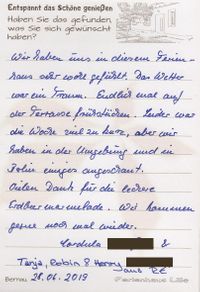 Entspannt das Schöne genießen
Haben Sie das gefunden,
was Sie sich gewünscht
haben?
Wir haben uns in diesem Ferien-
haus sehr wohl gefühlt. Das Wetter
war ein Traum. Endlich mal auf
der Terrasse frühstücken. Leider war
die Woche viel zu kurz, aber wir
haben in der Umgebung und in
Polen einiges angeschaut.
Vielen Dank für die leckere
Erdbeermarmelade. Wir kommen
gerne noch mal wieder.
Cordula &
Tanja, Robin & Henry
Bernau, 28.06.2019
Ferienhaus Lilie